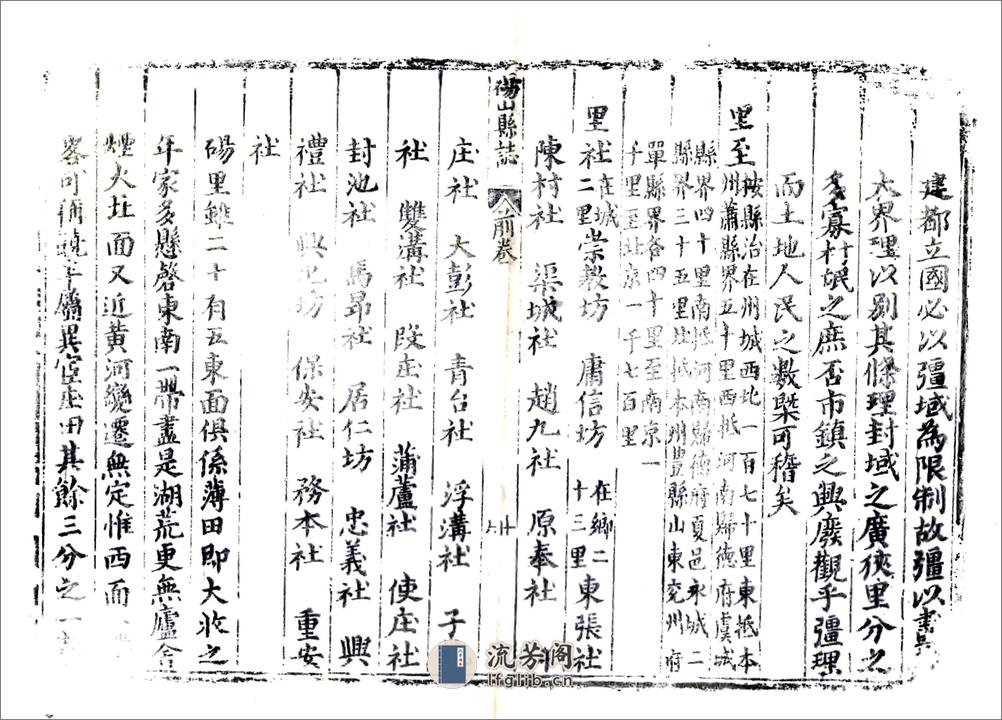 建都立國必以疆域為限制故疆以書其
大界理以別其條理封域之廣狹里分之
多寡村氓之庶否市鎮之興廢觀乎疆理
而土地人民之數槩可稽矣
里至
按縣治在州城西北一百七十里東抵本
州蕭縣界五十里西抵河南歸德府虞城
縣界四十里南抵河南歸德府夏邑永城二
縣界三十五里北抵本州豊縣山東兖州府
單縣界各四十里至南京一
千里至北京一千七百里
里社
在城
二里
崇教坊 庸信坊
在鄉二
十三里
東張社
陳村社 渠城社 趙九社 原奉社
碭山縣誌 前卷
庄社 大彭社 青台社 浮溝社 子
社 雙溝社 段庄社 蒲蘆社 使庄社
封池社 馬昻社 居仁坊 忠義社 興
禮社 興
坊 保安社 務本社 重安
社
碭里雖二十有五東面俱係薄田即大收之
年家多懸磬東南一帶盡是湖荒更無廬舍
煙火北面又近黄河變遷無定惟西面
客可
屬異宦庄田其餘三分之一
流芳阁
lfglib.cn